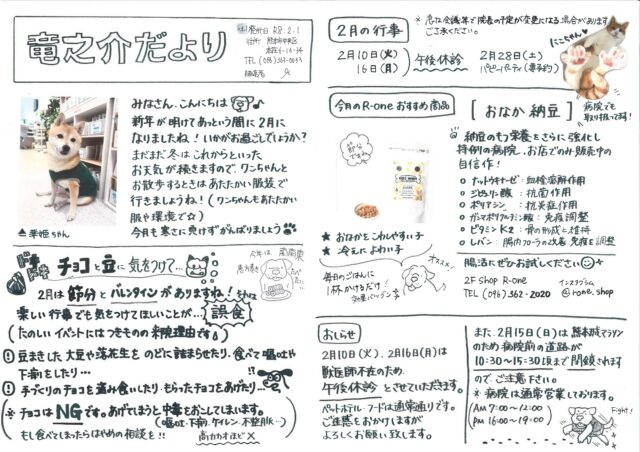 竜之介だより
発行日 R8.2.1
住所 熊本市中央区
本荘6-16-34
TEL (096) 363-0033
みなさん、こんにちは
新年が明けてあっという間に2月に
なりましたね！いかがお過ごしでしょうか？
まだまだ冬はこれからといった
お天気が続きますので、ワンちゃんと
お散歩するときはあたたかい服装で
行きましょうね！（ワンちゃんもあたたかい
服や環境で☆）
今月も寒さに負けずがんばりましょう
ちゃん
ドキドキ
チョコと豆に気をつけて…
今年は
南南東
恵方巻き
2月は節分とバレンタインがありますね！それは
楽しい行事でも気をつけてほしいことが…誤食
（たのしいイベントにはつきものの来院理由です）
! 豆まきした大豆や落花生をのどに詰まらせたり、食べて嘔吐や
下痢をしたり…
! 手づくりのチョコを盗み食いしたり、もらったチョコをあげたり…
※チョコはNGです。あげてしまうと中毒をおこしてしまいます。
（嘔吐・下痢、ケイレン、不整脈…）
もし食べてしまったらはやめの相談を!!
高カカオほど×
2月の行事
※急な会議等で院長の予定が変更になる場合があります
ご了承ください。
2月10日(火)
16日(月)
午後休診
2月28日(土)
パピーパーティ(要予約)
にこちゃん
今月のR-oneおすすめ商品
節分ですね
★ おなかをこわしやすい子
★ 冷えによわい子
毎日のごはんに
1杯かけるだけ！
効果バツグン☆
オススメ！
[おなか納豆]
病院でも
取り扱ってます！
納豆のもつ栄養をさらに強化し
特例の病院、お店でのみ販売中の
自信作！
○ ナットウキナーゼ：血栓溶解作用
○ ジピコリン酸：抗菌作用
○ ポリアミン：抗炎症作用
○ ガンマポリグルタミン酸：免疫調整
○ ビタミンK2：骨の形成と維持
○ レバン：腸内フローラの改善 免疫を調整
腸活にぜひお試しください
2F Shop R-one
TEL (096) 362-2020
インスタグラム
@rone.shop
おしらせ
2月10日(火)、2月16日(月)は
獣医師不在のため
午後休診とさせていただきます。
ペットホテル・フードは通常通りです。
ご迷惑をおかけしますが
よろしくお願い致します。
また、2月15日(日)は熊本城マラソン
のため病院前の道路が
10:30~15:30頃まで閉鎖されます
ので、ご注意下さい。
※病院は通常営業しております。
(AM 7:00~12:00)
(pm 16:00~19:00)
Fight!